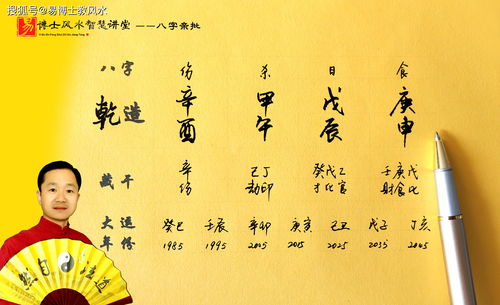 搜狐号@易博士教风水
易 博士风水智慧讲堂 ——八字亲批
八字 伤 杀 日 食
乾造 辛 甲 戊 庚
酉 午 辰 申
藏干 辛 己丁 癸戊乙 壬庚戊
伤 劫印 才比官 财食比
大运 癸巳 壬辰 辛卯 庚寅 己丑 戊子 丁亥
年份 1985 1995 2005 2015 2025 2035 2045
道法自然